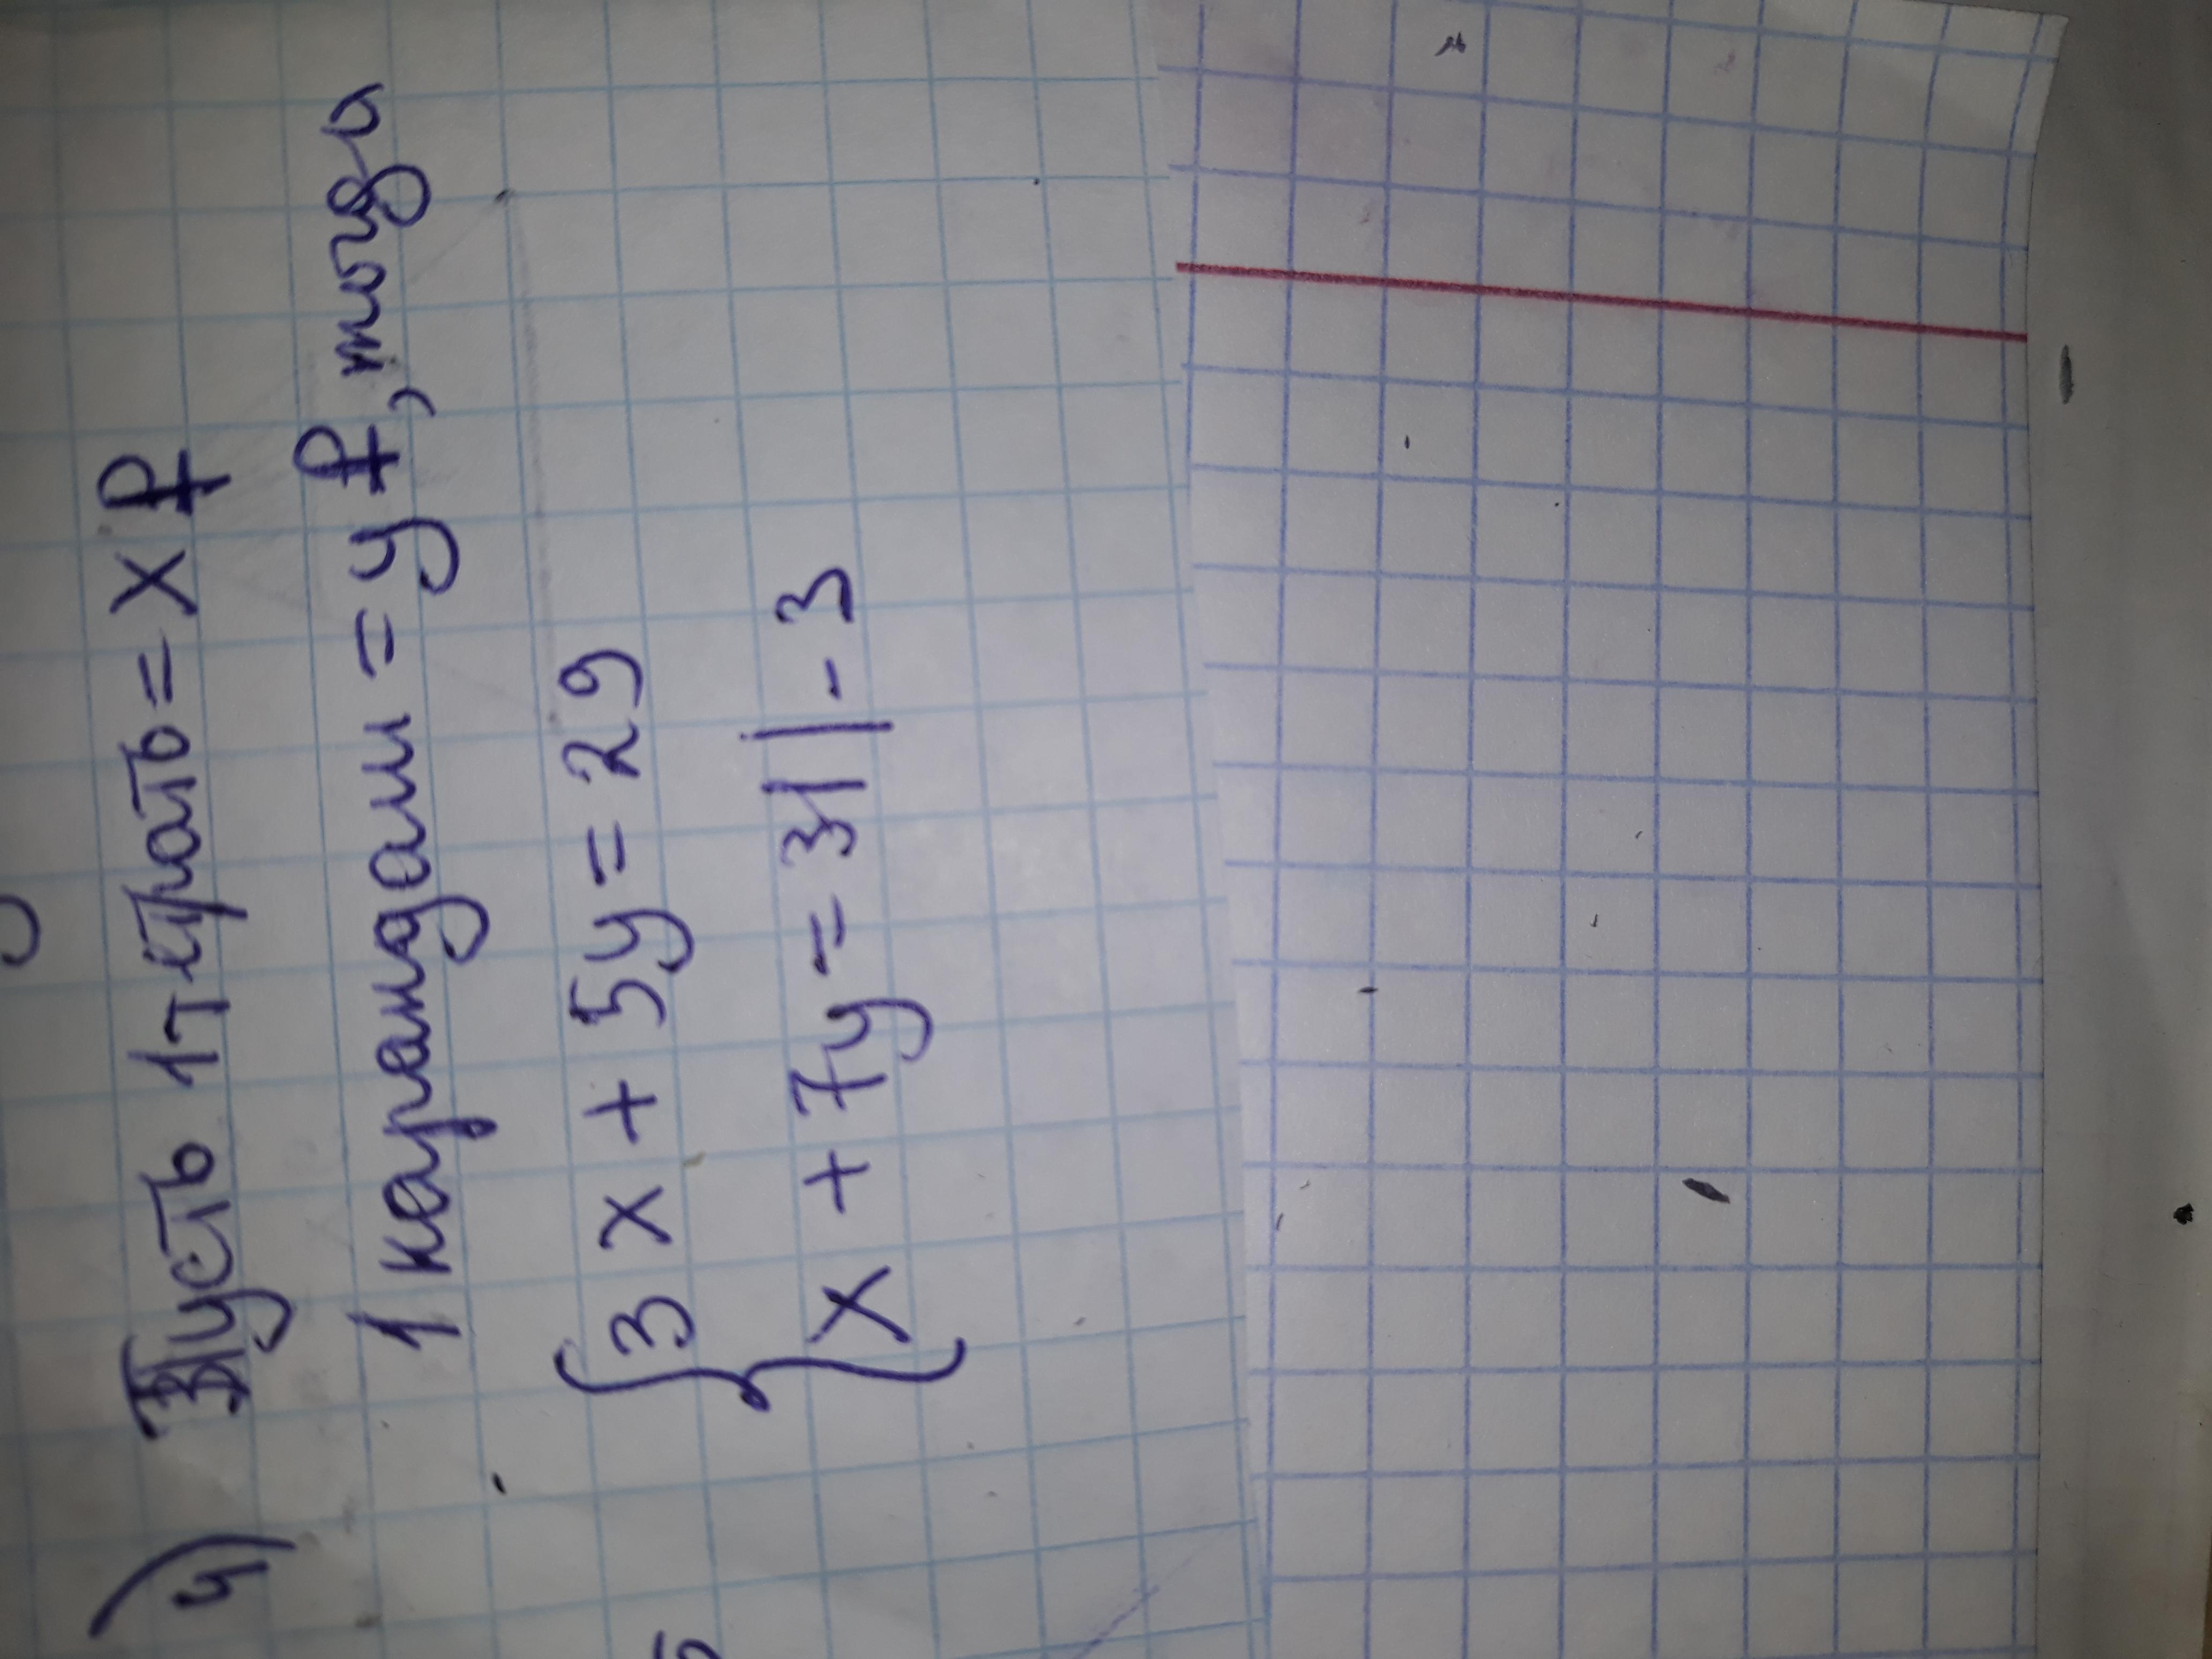 4) Пусть 1 тетрадь = x ₽
1 карандаш = y ₽, тогда
{ 3x + 5y = 29
x + 7y = 31 | - 3